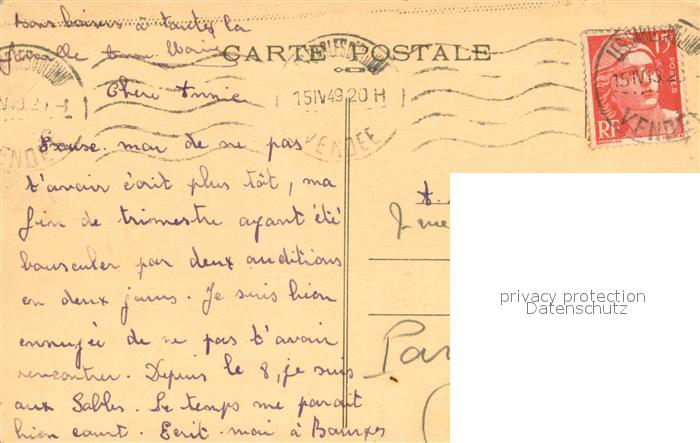 bons baisers à toute la
famille Anne Marie
CARTE POSTALE
Chère Annie
15 IV 49 20 H
VENDEE
15F
POSTES
RF
15 IV 49
VENDEE
Excuse-moi de ne pas
t'avoir écrit plus tôt, ma
fin de trimestre ayant été
bousculer par deux auditions
en deux jours. Je suis bien
ennuyée de ne pas t'avoir
rencontrer. Depuis le 8, je suis
aux Sables. Le temps me parait
bien court. Ecrit-moi à
privacy protection
Datenschutz